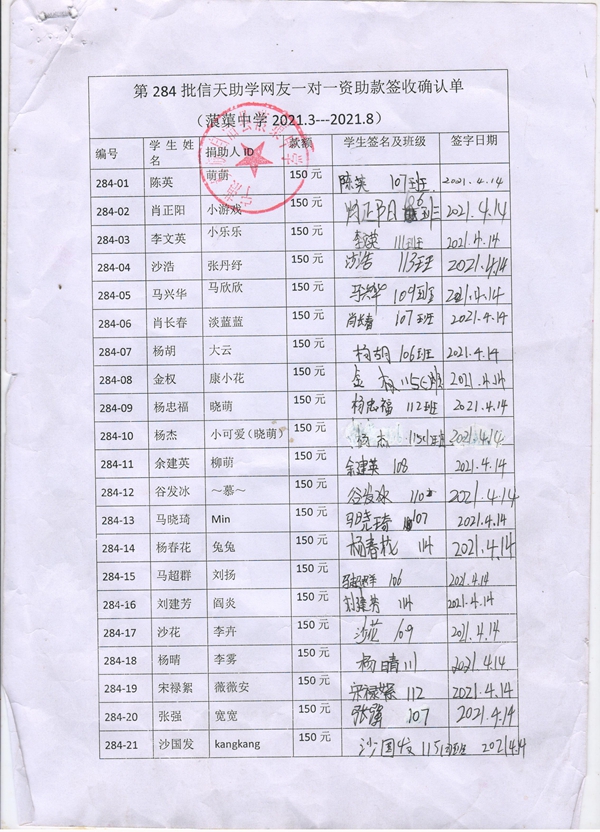 第 284 批信天助学网友一对一资助款签收确认单
（蒗蕖中学 2021.3---2021.8）
编号 学 生 姓名 捐助人 ID 款额 学生签名及班级 签字日期
284-01 陈英 萌萌 150 元 陈英 107班 2021.4.14
284-02 肖正阳 小游戏 150 元 肖正阳 2021.4.14
284-03 李文英 小乐乐 150 元 111班 2021.4.14
284-04 沙浩 张丹纾 150 元 沙浩 113班 2021.4.14
284-05 马兴华 马欣欣 150 元 马兴华 109班 2021.4.14
284-06 肖长春 淡蓝蓝 150 元 肖长春 107班 2021.4.14
284-07 杨胡 大云 150 元 杨胡 106班 2021.4.14
284-08 金权 康小花 150 元 金权 115班 2021.4.14
284-09 杨忠福 晓萌 150 元 杨忠福 112班 2021.4.14
284-10 杨杰 小可爱（晓萌） 150 元 杨杰 115班 2021.4.14
284-11 余建英 柳萌 150 元 余建英 108 2021.4.14
284-12 谷发冰 ～慕～ 150 元 谷发冰 110 2021.4.14
284-13 马晓琦 Min 150 元 马晓琦 107 2021.4.14
284-14 杨春花 兔兔 150 元 杨春花 114 2021.4.14
284-15 马超群 刘扬 150 元 马超群 106 2021.4.14
284-16 刘建芳 阎炎 150 元 刘建芳 114 2021.4.14
284-17 沙花 李卉 150 元 沙花 109 2021.4.14
284-18 杨晴 李雾 150 元 杨晴 111 2021.4.14
284-19 宋禄絮 薇薇安 150 元 宋禄絮 112 2021.4.14
284-20 张强 宽宽 150 元 张强 107 2021.4.14
284-21 沙国发 kangkang 150 元 沙国发 115班 2021.4.14